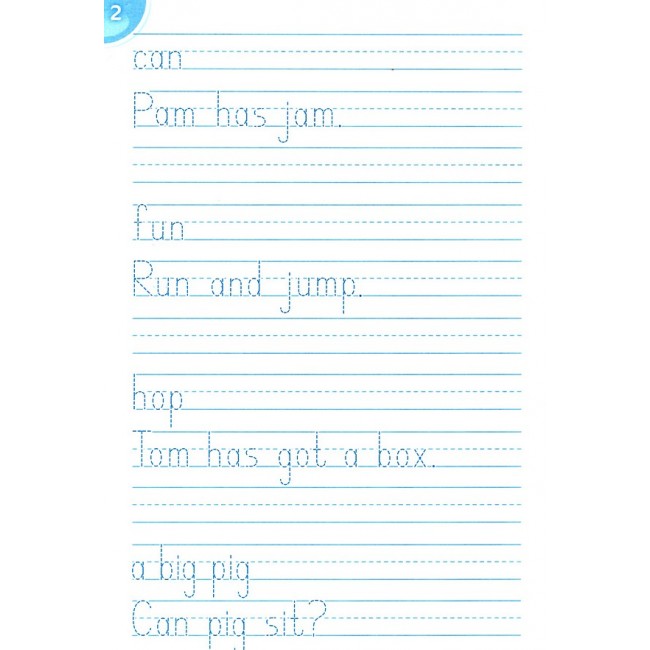 2
can
Pam has jam.
fun
Run and jump.
hop
Tom has got a box.
a big pig
Can pig sit?